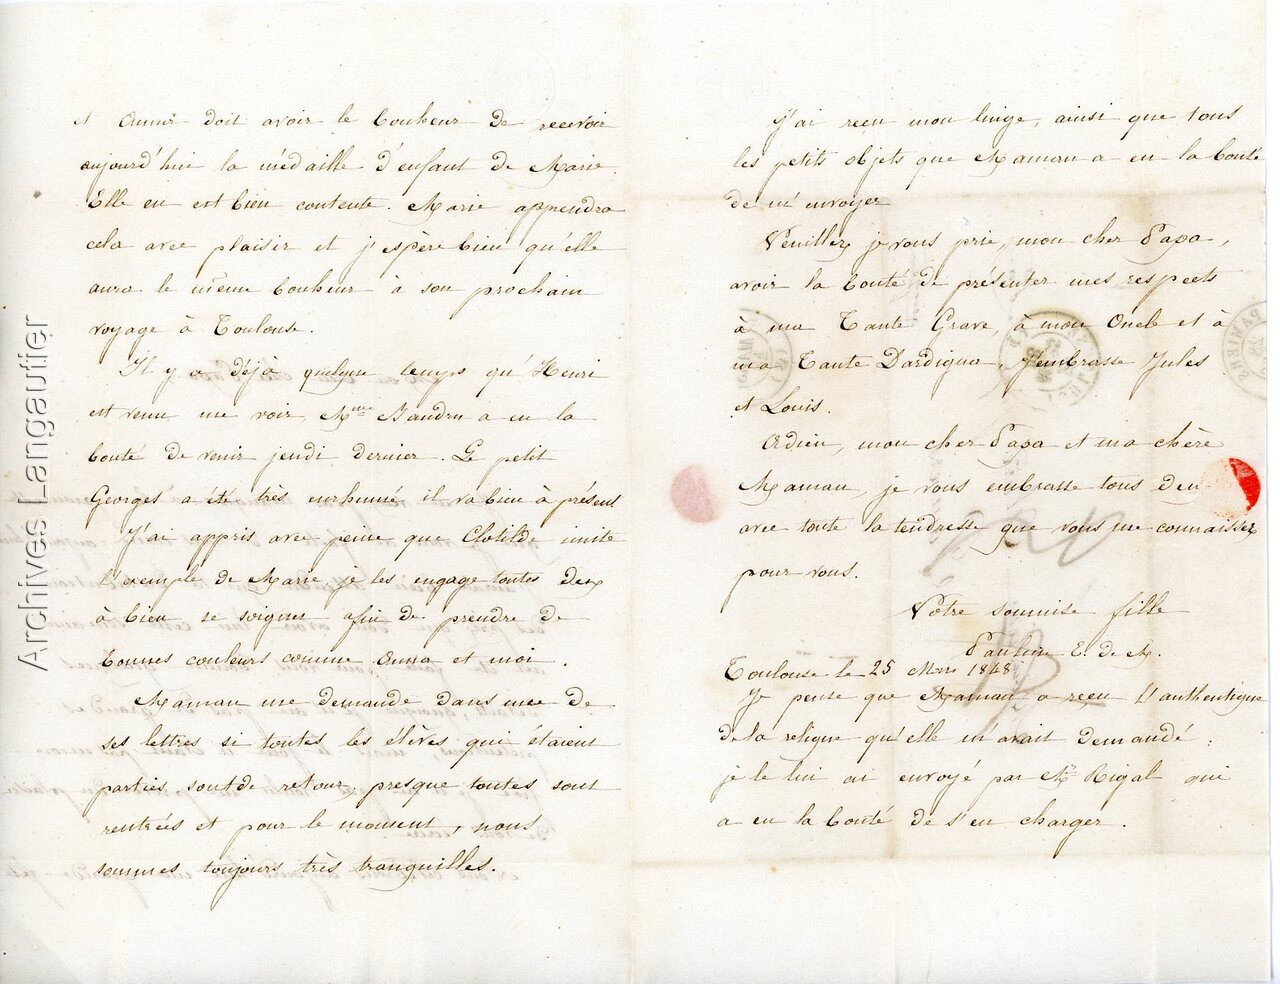 Anna doit avoir le bonheur de recevoir
aujourd'hui la médaille d'enfant de Marie.
Elle en est bien contente. Marie apprendra
cela avec plaisir et j'espère bien qu'elle
aura le même bonheur à son prochain
voyage à Toulouse.
Il y a déjà quelque temps qu'Henri
est venu me voir, Mme Baudru a eu la
bonté de venir jeudi dernier. Le petit
Georges a été très enrhumé il va bien à présent
J'ai appris avec peine que Clotilde imite
l'exemple de Marie je les engage toutes deux
à bien se soigner afin de prendre de
bonnes couleurs comme Anna et moi.
Maman me demande dans une de
ses lettres si toutes les élèves qui étaient
parties sont de retour, presque toutes sont
rentrées et pour le moment, nous
sommes toujours très tranquilles.
J'ai reçu mon linge, ainsi que tous
les petits objets que Maman a eu la bonté
de m'envoyer
Veuillez je vous prie, mon cher Papa,
avoir la bonté de présenter mes respects
à ma Tante Grave, à mon Oncle et à
ma Tante Dardigna, j'embrasse Jules
et Louis.
Adieu, mon cher Papa et ma chère
Maman, je vous embrasse tous deux
avec toute la tendresse que vous me connaissez
pour vous.
Votre soumise fille
Pauline E. de M.
Toulouse le 25 Mars 1848
Je pense que Maman a reçu l'authentique
de la relique qu'elle m'avait demandé:
je le lui ai envoyé par Mr Rigal qui
a eu la bonté de s'en charger.
Archives Langautier